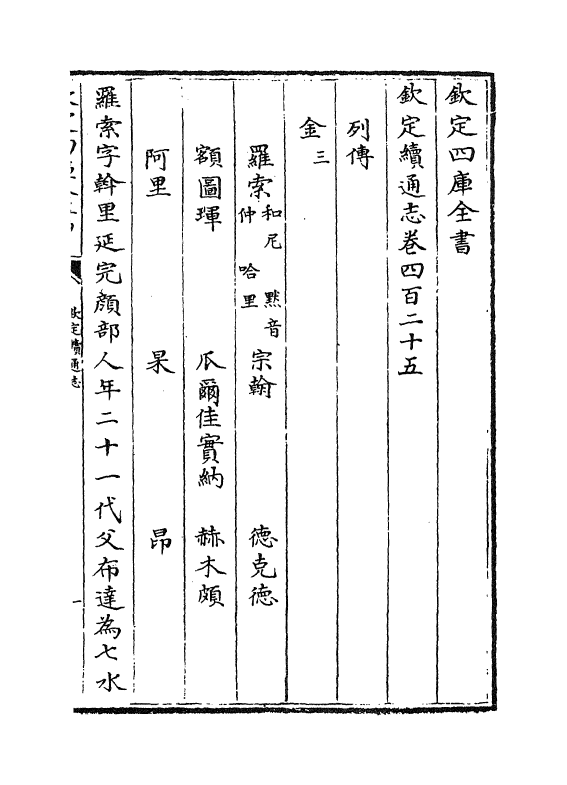 欽定四庫全書
欽定續通志卷四百二十五
列傳
金三
羅索和尼 仲 默音 哈里 宗翰 德克德
額圖琿 瓜爾佳實納 赫木頗
阿里 杲 昂
羅索字斡里延完顔部人年二十一代父布達為七水
欽定續通志
一